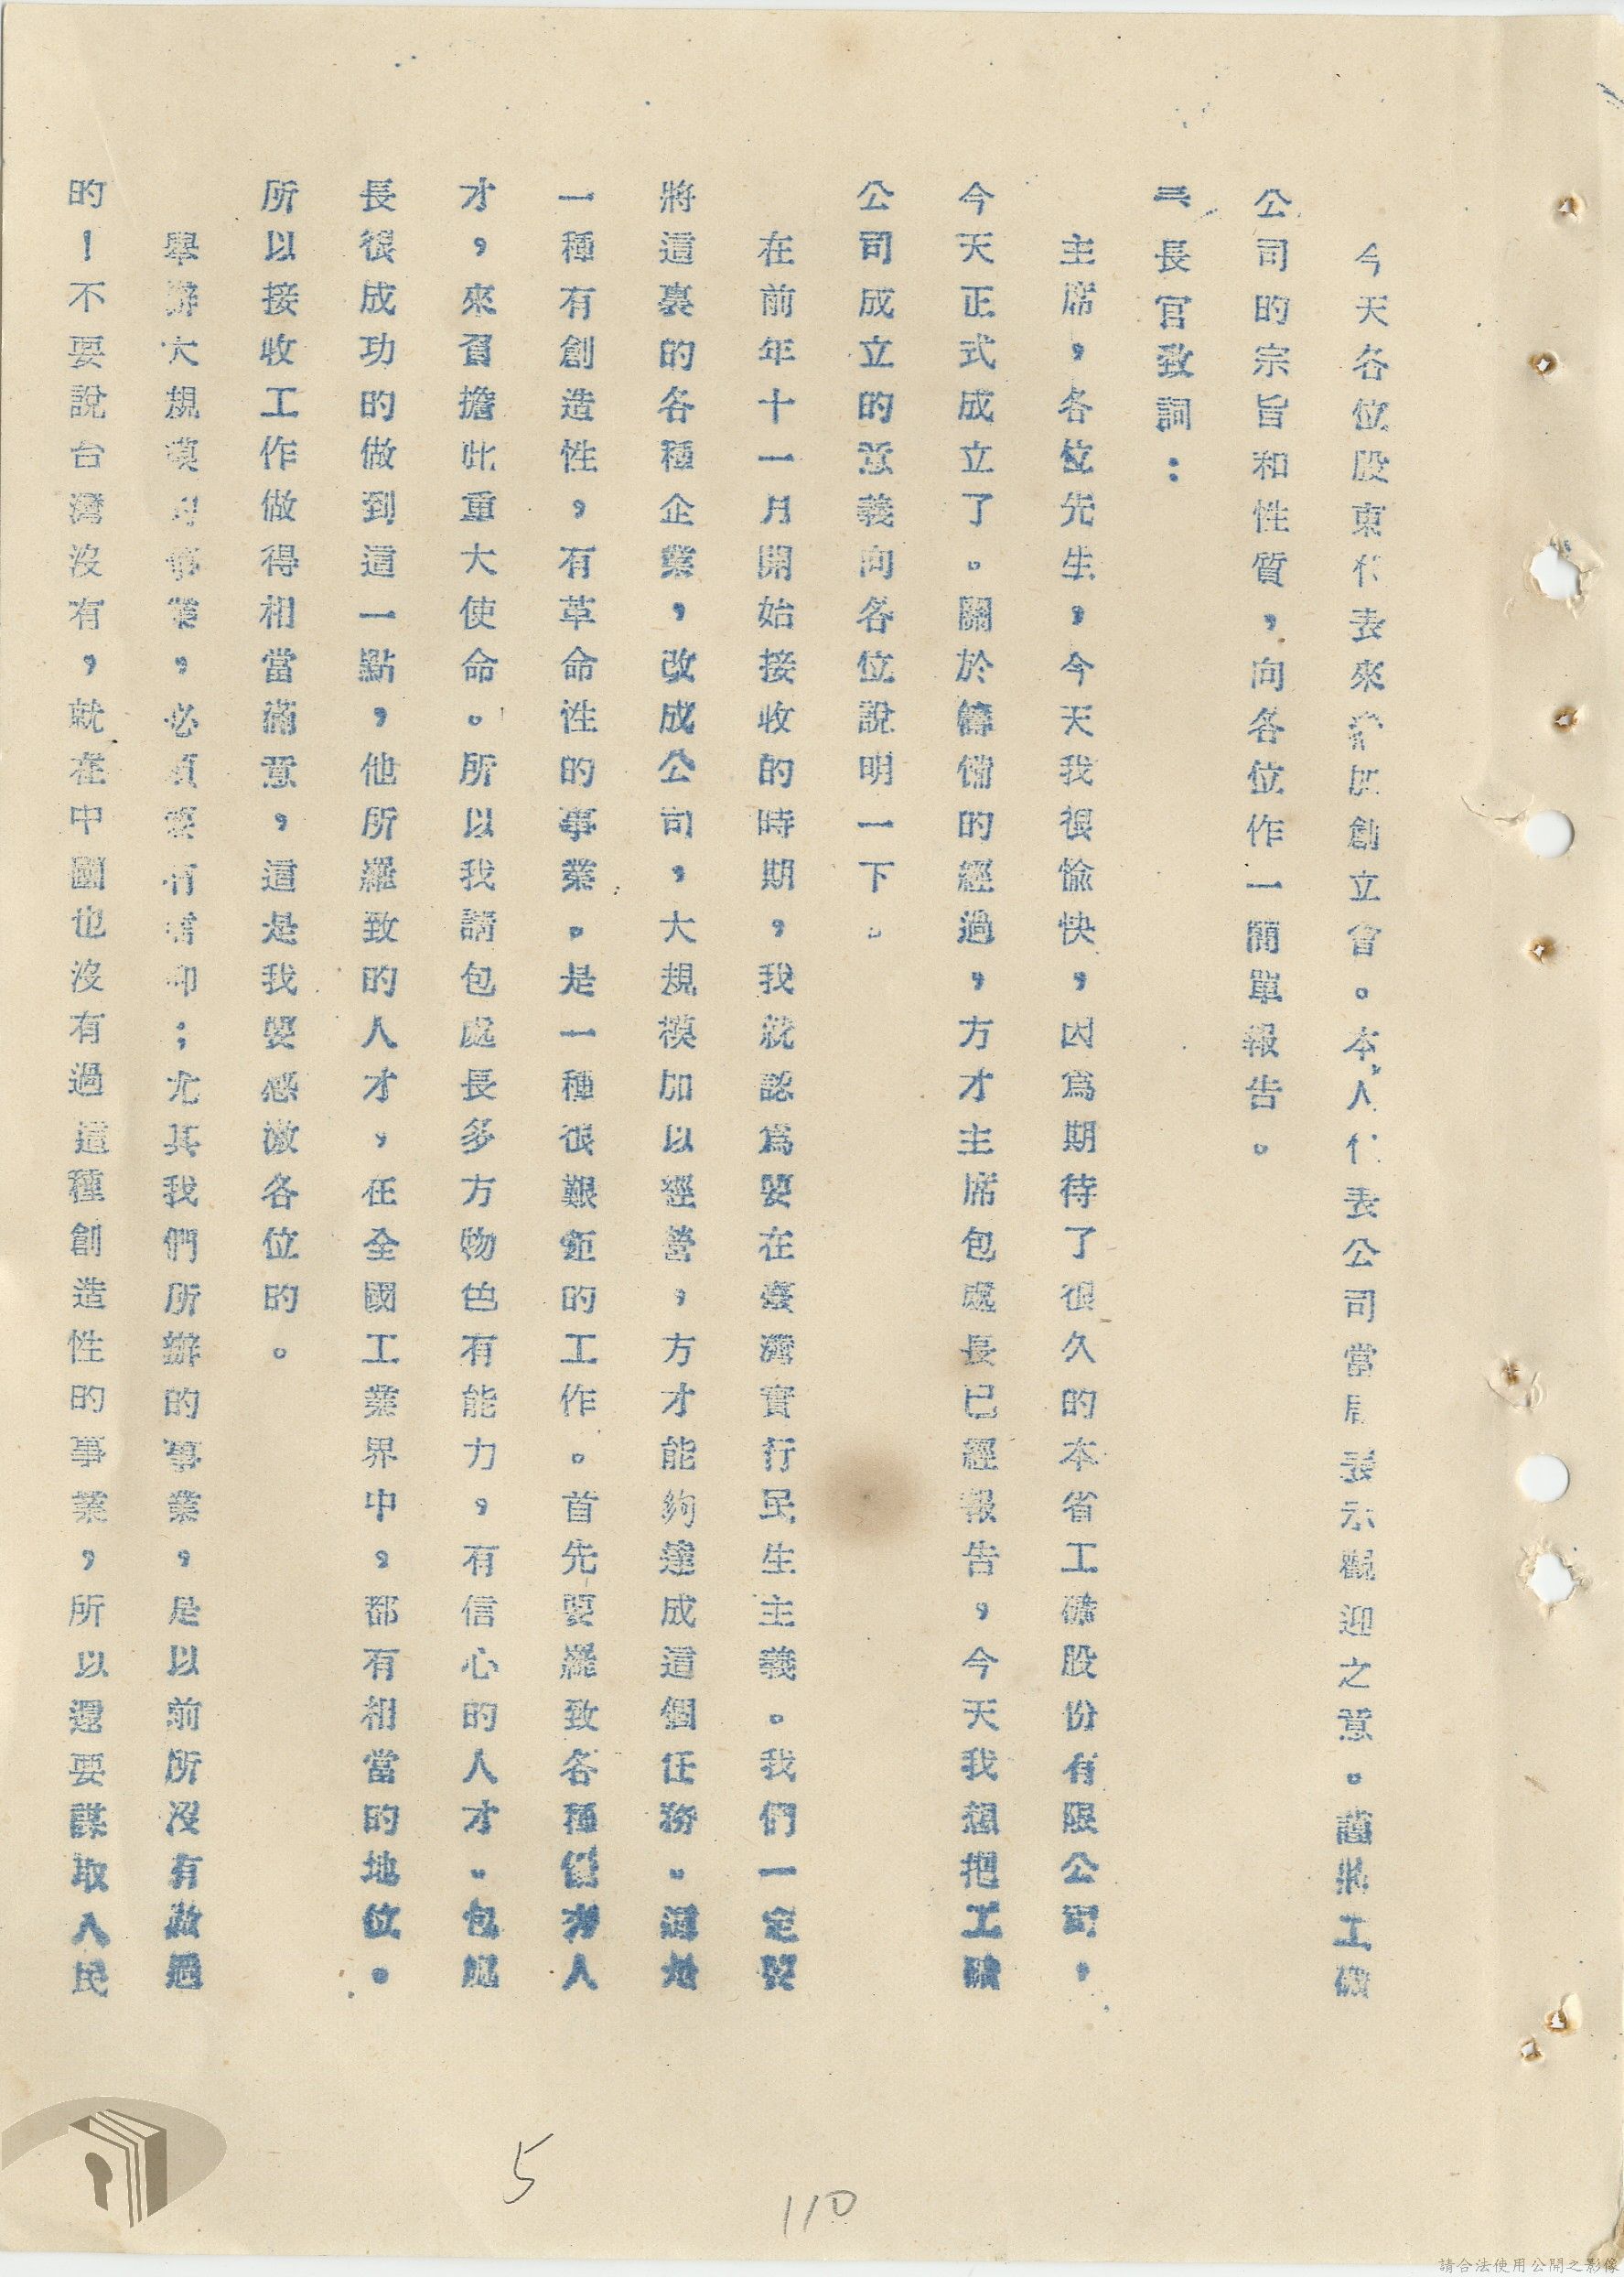 今天各位股東代表來參加創立會。本人代表公司當局表示歡迎之意。謹將工礦
公司的宗旨和性質，向各位作一簡單報告。
長官致詞：
主席，各位先生，今天我很愉快，因爲期待了很久的本省工礦股份有限公司，
今天正式成立了。關於籌備的經過，方才主席包處長已經報告，今天我想把工礦
公司成立的意義向各位說明一下。
在前年十一月開始接收的時期，我就認爲要在臺灣實行民生主義。我們一定要
將這裏的各種企業，改成公司，大規模加以經營，方才能夠達成這個任務。這是
一種有創造性，有革命性的事業。是一種很艱鉅的工作。首先要羅致各種優秀人
才，來負擔此重大使命。所以我請包處長多方物色有能力，有信心的人才。包處
長很成功的做到這一點，他所羅致的人才，在全國工業界中，都有相當的地位。
所以接收工作做得相當滿意，這是我要感激各位的。
舉辦大規模的事業，必須要有信仰；尤其我們所辦的事業，是以前所沒有做過
的！不要說台灣沒有，就在中國也沒有過這種創造性的事業，所以還要謀取人民
5
110
請合法使用公開之影像